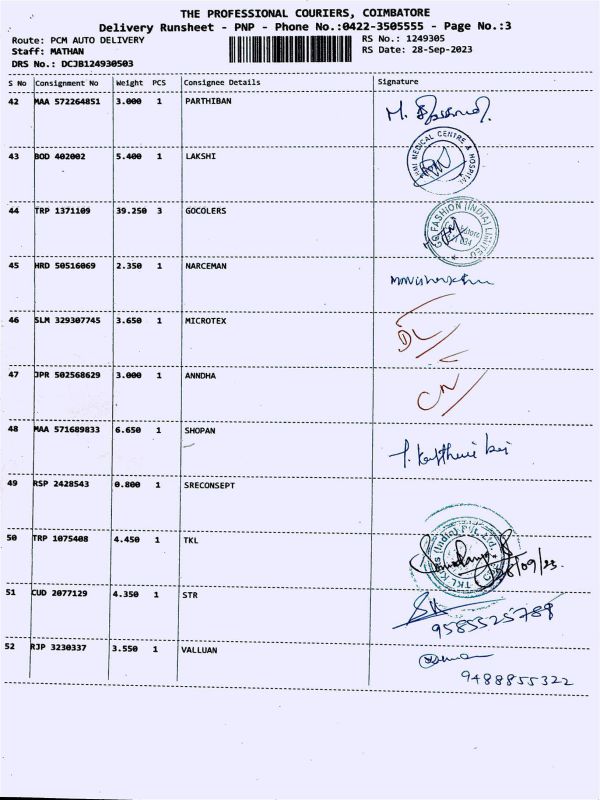 THE PROFESSIONAL COURIERS, COIMBATORE
Delivery Runsheet - PNP - Phone No.:0422-3505555 - Page No.:3
Route: PCM AUTO DELIVERY
RS No.: 1249305
Staff: MATHAN
RS Date: 28-Sep-2023
DRS No.: DCJB124930503
S No Consignment No Weight PCS Consignee Details Signature
42 MAA 572264851 3.000 1 PARTHIBAN
43 BOD 402002 5.400 1 LAKSHI
MEDICAL CENTRE & HOSPITAL
44 TRP 1371109 39.250 3 GOCOLERS
FASHION (INDIA) LIMITED
45 HRD 50516069 2.350 1 NARCEMAN
46 SLM 329307745 3.650 1 MICROTEX
DL
47 JPR 502568629 3.000 1 ANNDHA
CN
48 MAA 571689833 6.650 1 SHOPAN
49 RSP 2428543 0.800 1 SRECONSEPT
50 TRP 1075408 4.450 1 TKL
TKL (India) Pvt. Ltd.
/09/23.
51 CUD 2077129 4.350 1 STR
9585525789
52 RJP 3230337 3.550 1 VALLUAN
9488855322